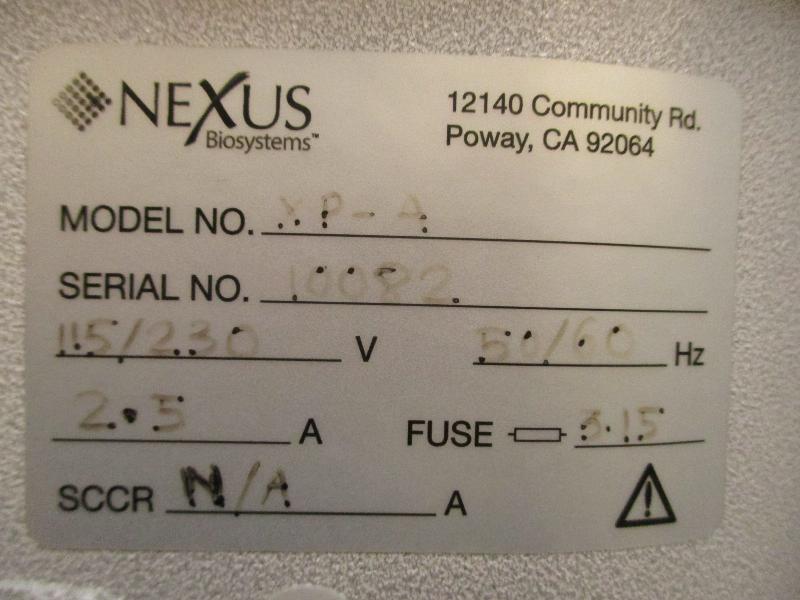 NEXUS
Biosystems™
12140 Community Rd.
Poway, CA 92064
MODEL NO. XP-A
SERIAL NO. 10082
115/230 V 50/60 Hz
2.5 A FUSE 3.15
SCCR N/A A